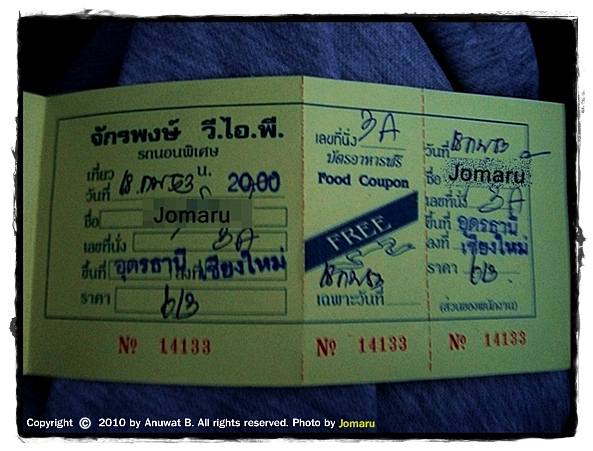 จักรพงษ์ วี.ไอ.พี.
รถนอนพิเศษ
เที่ยว น. 20.00
วันที่
ชื่อ Jomaru
เลขที่นั่ง 3A
ขึ้นที่ อุดรธานี ลงที่ เชียงใหม่
ราคา
No 14133
เลขที่นั่ง 3A
บัตรอาหารฟรี
Food Coupon
FREE
เฉพาะวันที่
No 14133
วันที่
ชื่อ Jomaru
เลขที่นั่ง 3A
ขึ้นที่ อุดรธานี
ลงที่ เชียงใหม่
ราคา
(ส่วนของพนักงาน)
No 14133
Copyright © 2010 by Anuwat B. All rights reserved. Photo by Jomaru